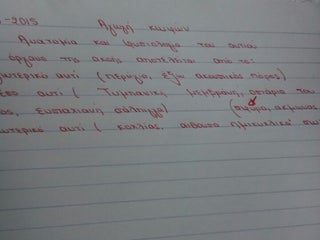 -2015 Αγωγή κωφών
Ανατομία και φυσιολογία του αυτιού
όργανο της ακοής αποτελείται από το:
ωτερικό αυτί (πτερύγιο, έξω ακουστικός πόρος)
έσο αυτί ( Τυμπανική μεμβράνη, οστάρια του
ος, ευσταχιανή σάλπιγγα) (σφύρα, άκμονας
ωτερικό αυτί ( κοχλίας, αίθουσα ημικυκλικοί